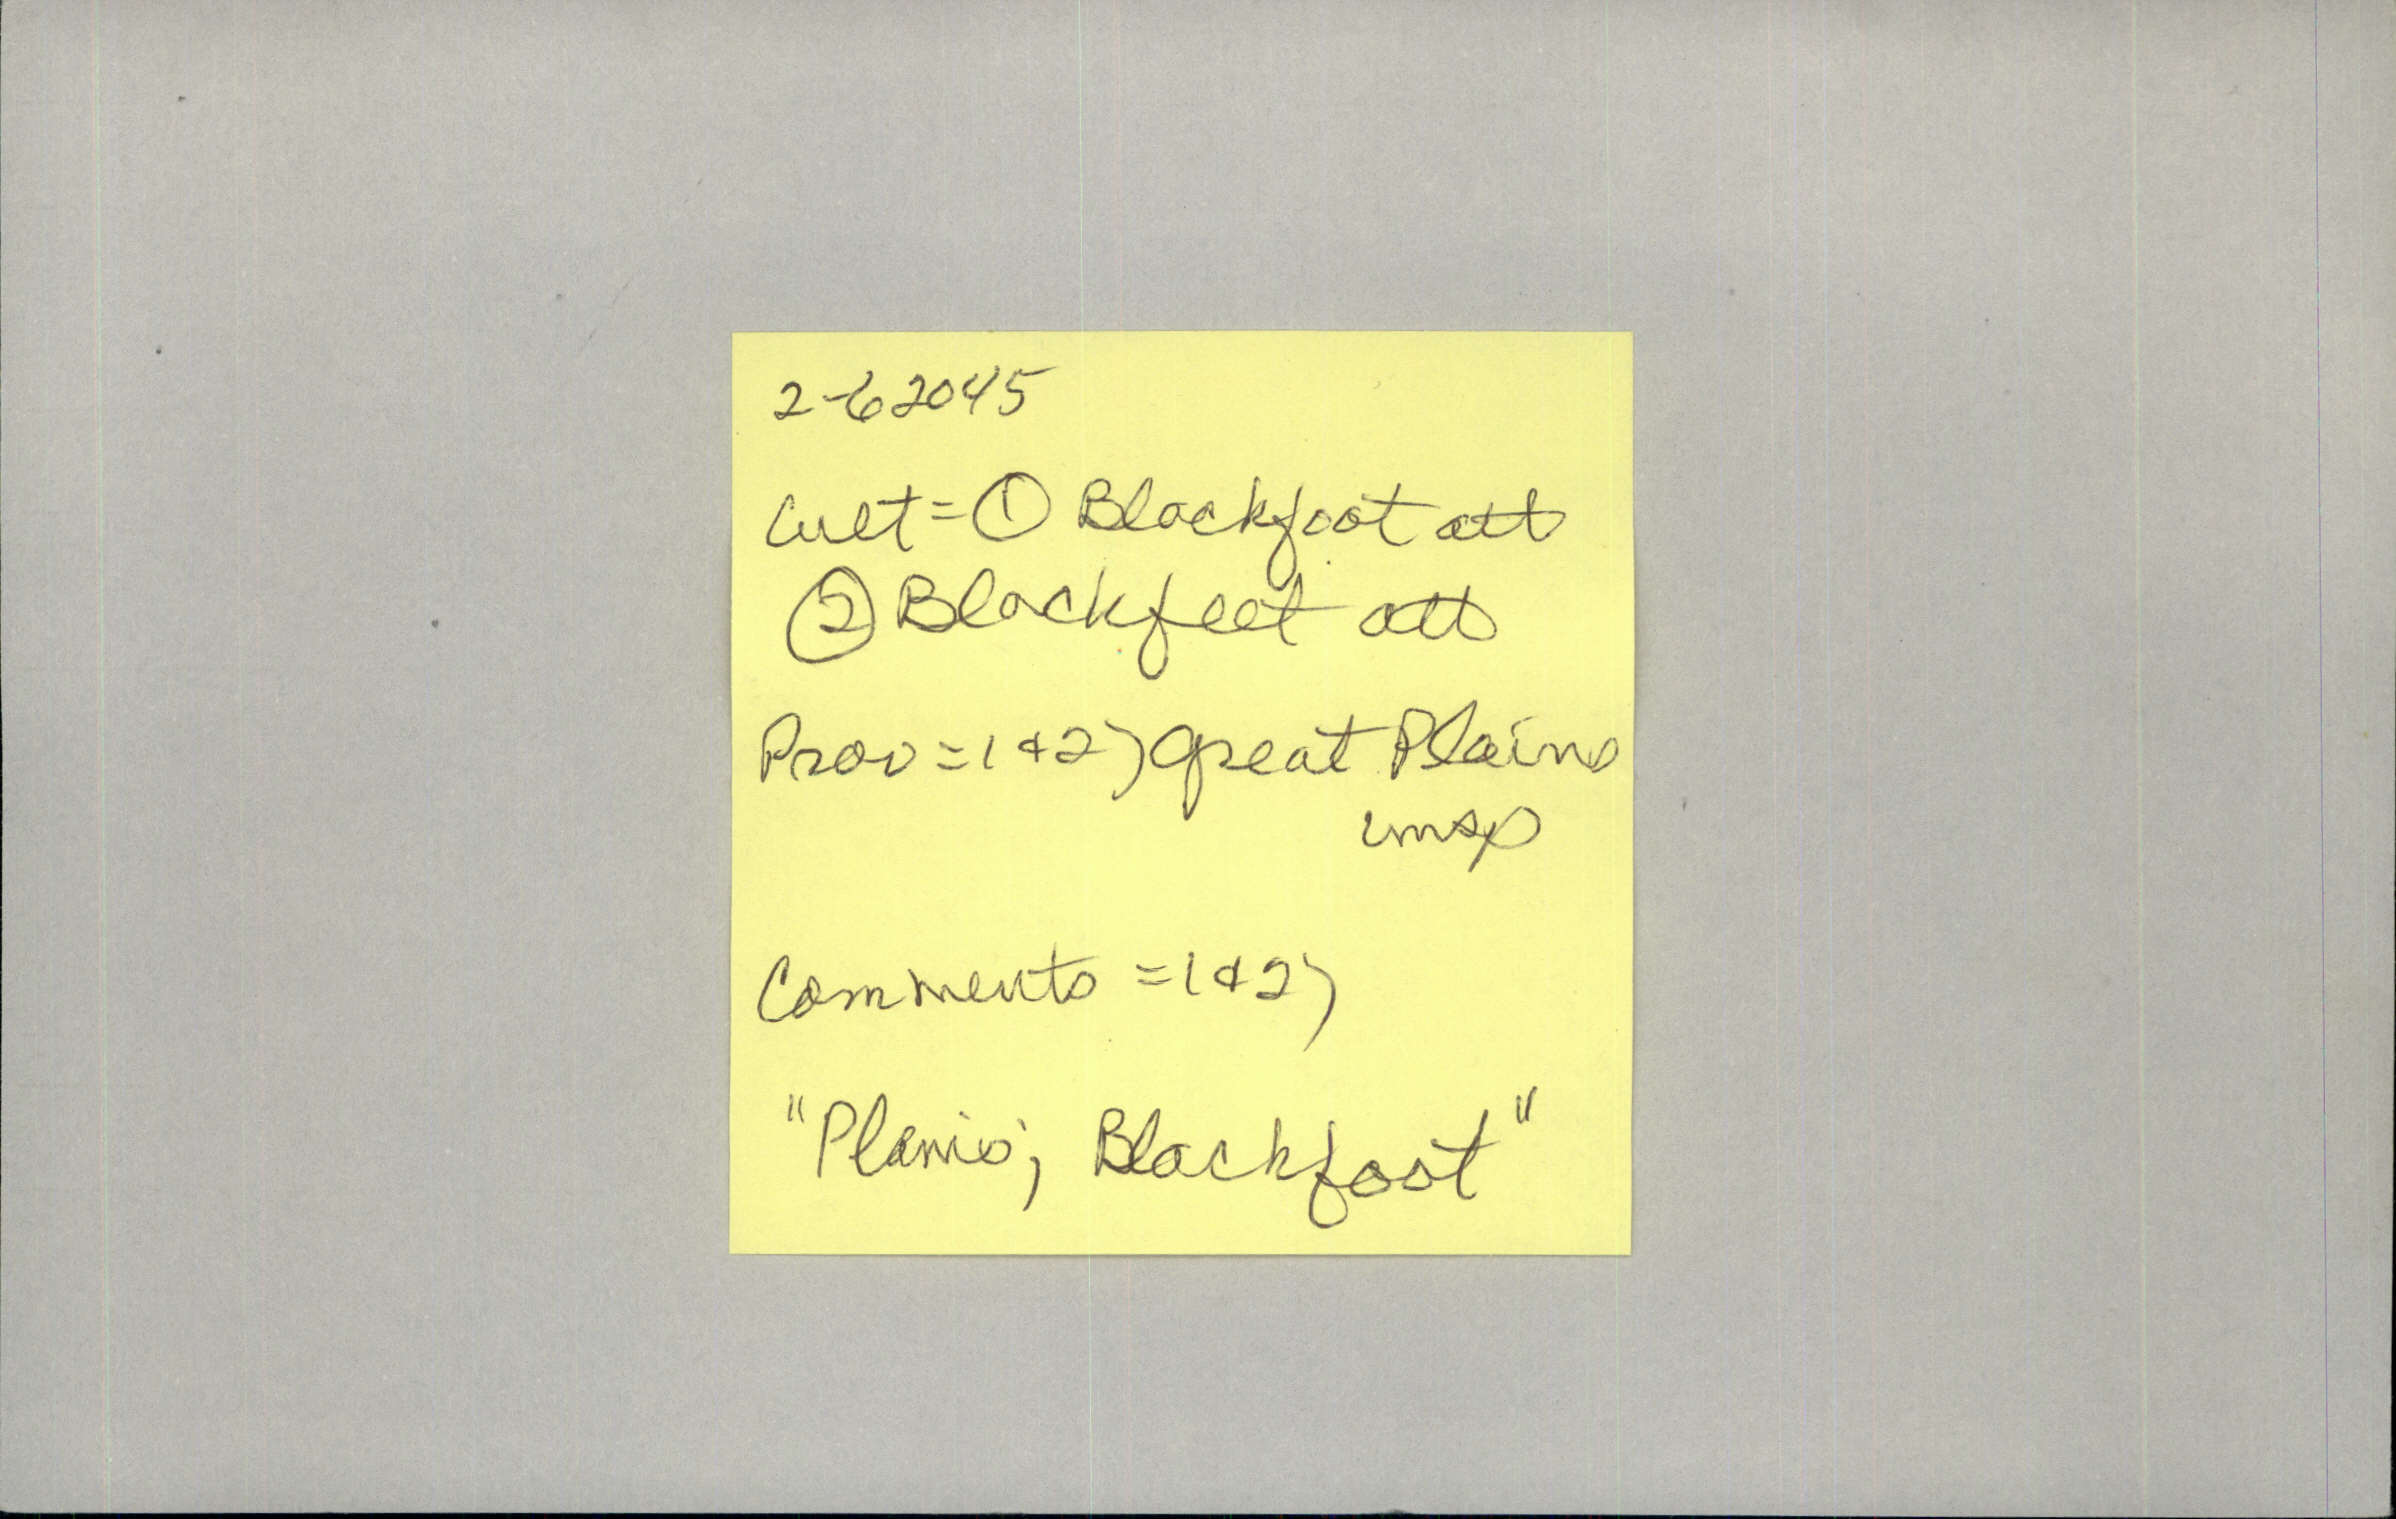 2-62045
Cult = ① Blackfoot att
② Blackfeet att
Prov = 1 & 2) Great Plains
unsp
Comments = 1 & 2)
"Plains; Blackfoot"